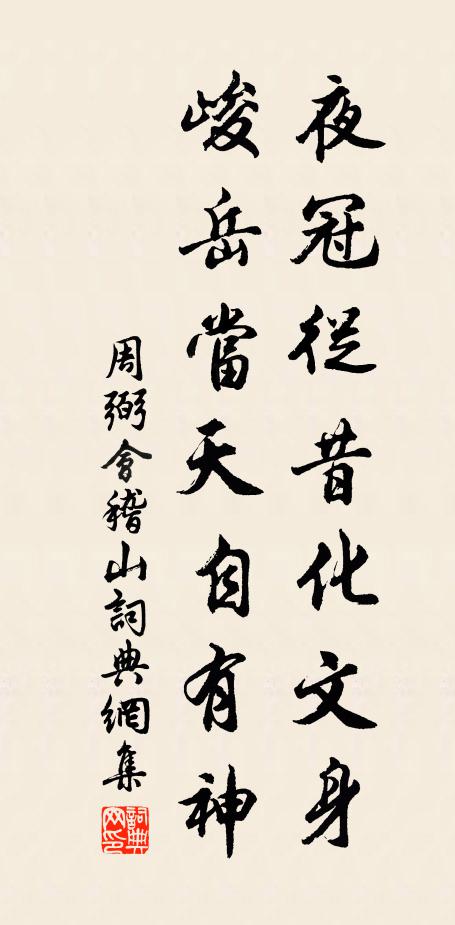 夜冠從昔化文身
峻岳當天自有神
周弼會稽山詞典網集
詞典网印